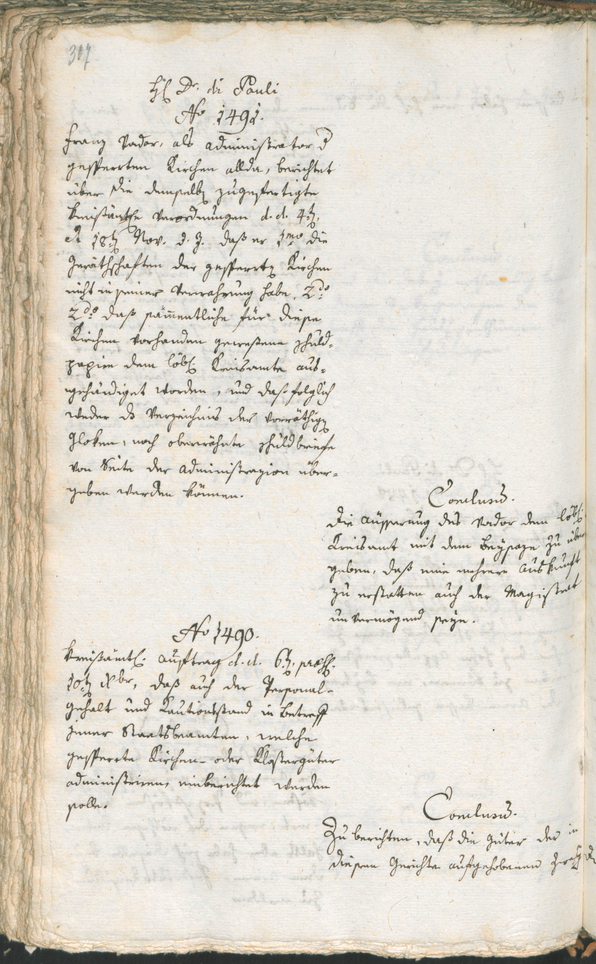 307.
H. Dr. di Pauli
No 1491.
Franz Nador, als Administrator d
gesperrten Kirchen allda, berichtet
über die demselb zugefertigte
kreisämtle Verordnungen d. d. 4t
et 18t Nov. d. J. daß er 1mo die
Geräthschaften der gesperrt Kirchen
nicht in seiner Verwahrung habe, 2do
2do daß sämmentliche für diese
Kirchen vorhanden gewesene Schuld-
papire dem löbl Kreisamte aus-
gehändiget worden, und daß folglich
weder ds Verzeichnis der vorräthig
Gloken, noch oberwähnte Schuldbriefe
von Seite der Administrazion über-
geben werden können.
Conclusum.
Die Äusserung des Nador dem löbl
Kreisamt mit dem Beysaze zu über
geben, daß eine mehrere Auskunft
zu erstatten auch der Magistrat
unvermögend seye.
No 1490.
Kreisämtl. Auftrag d. d. 6t praes.
10t Xbr, daß auch der Personal-
gehalt und Kautionsstand in Betreff
jener Staatsbeamten, welche
gesperrte Kirchen- oder Klostergüter
administriren, einberichtet werden
solle.
Conclusum.
Zu berichten, daß die Güter der in
diesem Gerichte aufgehobenen